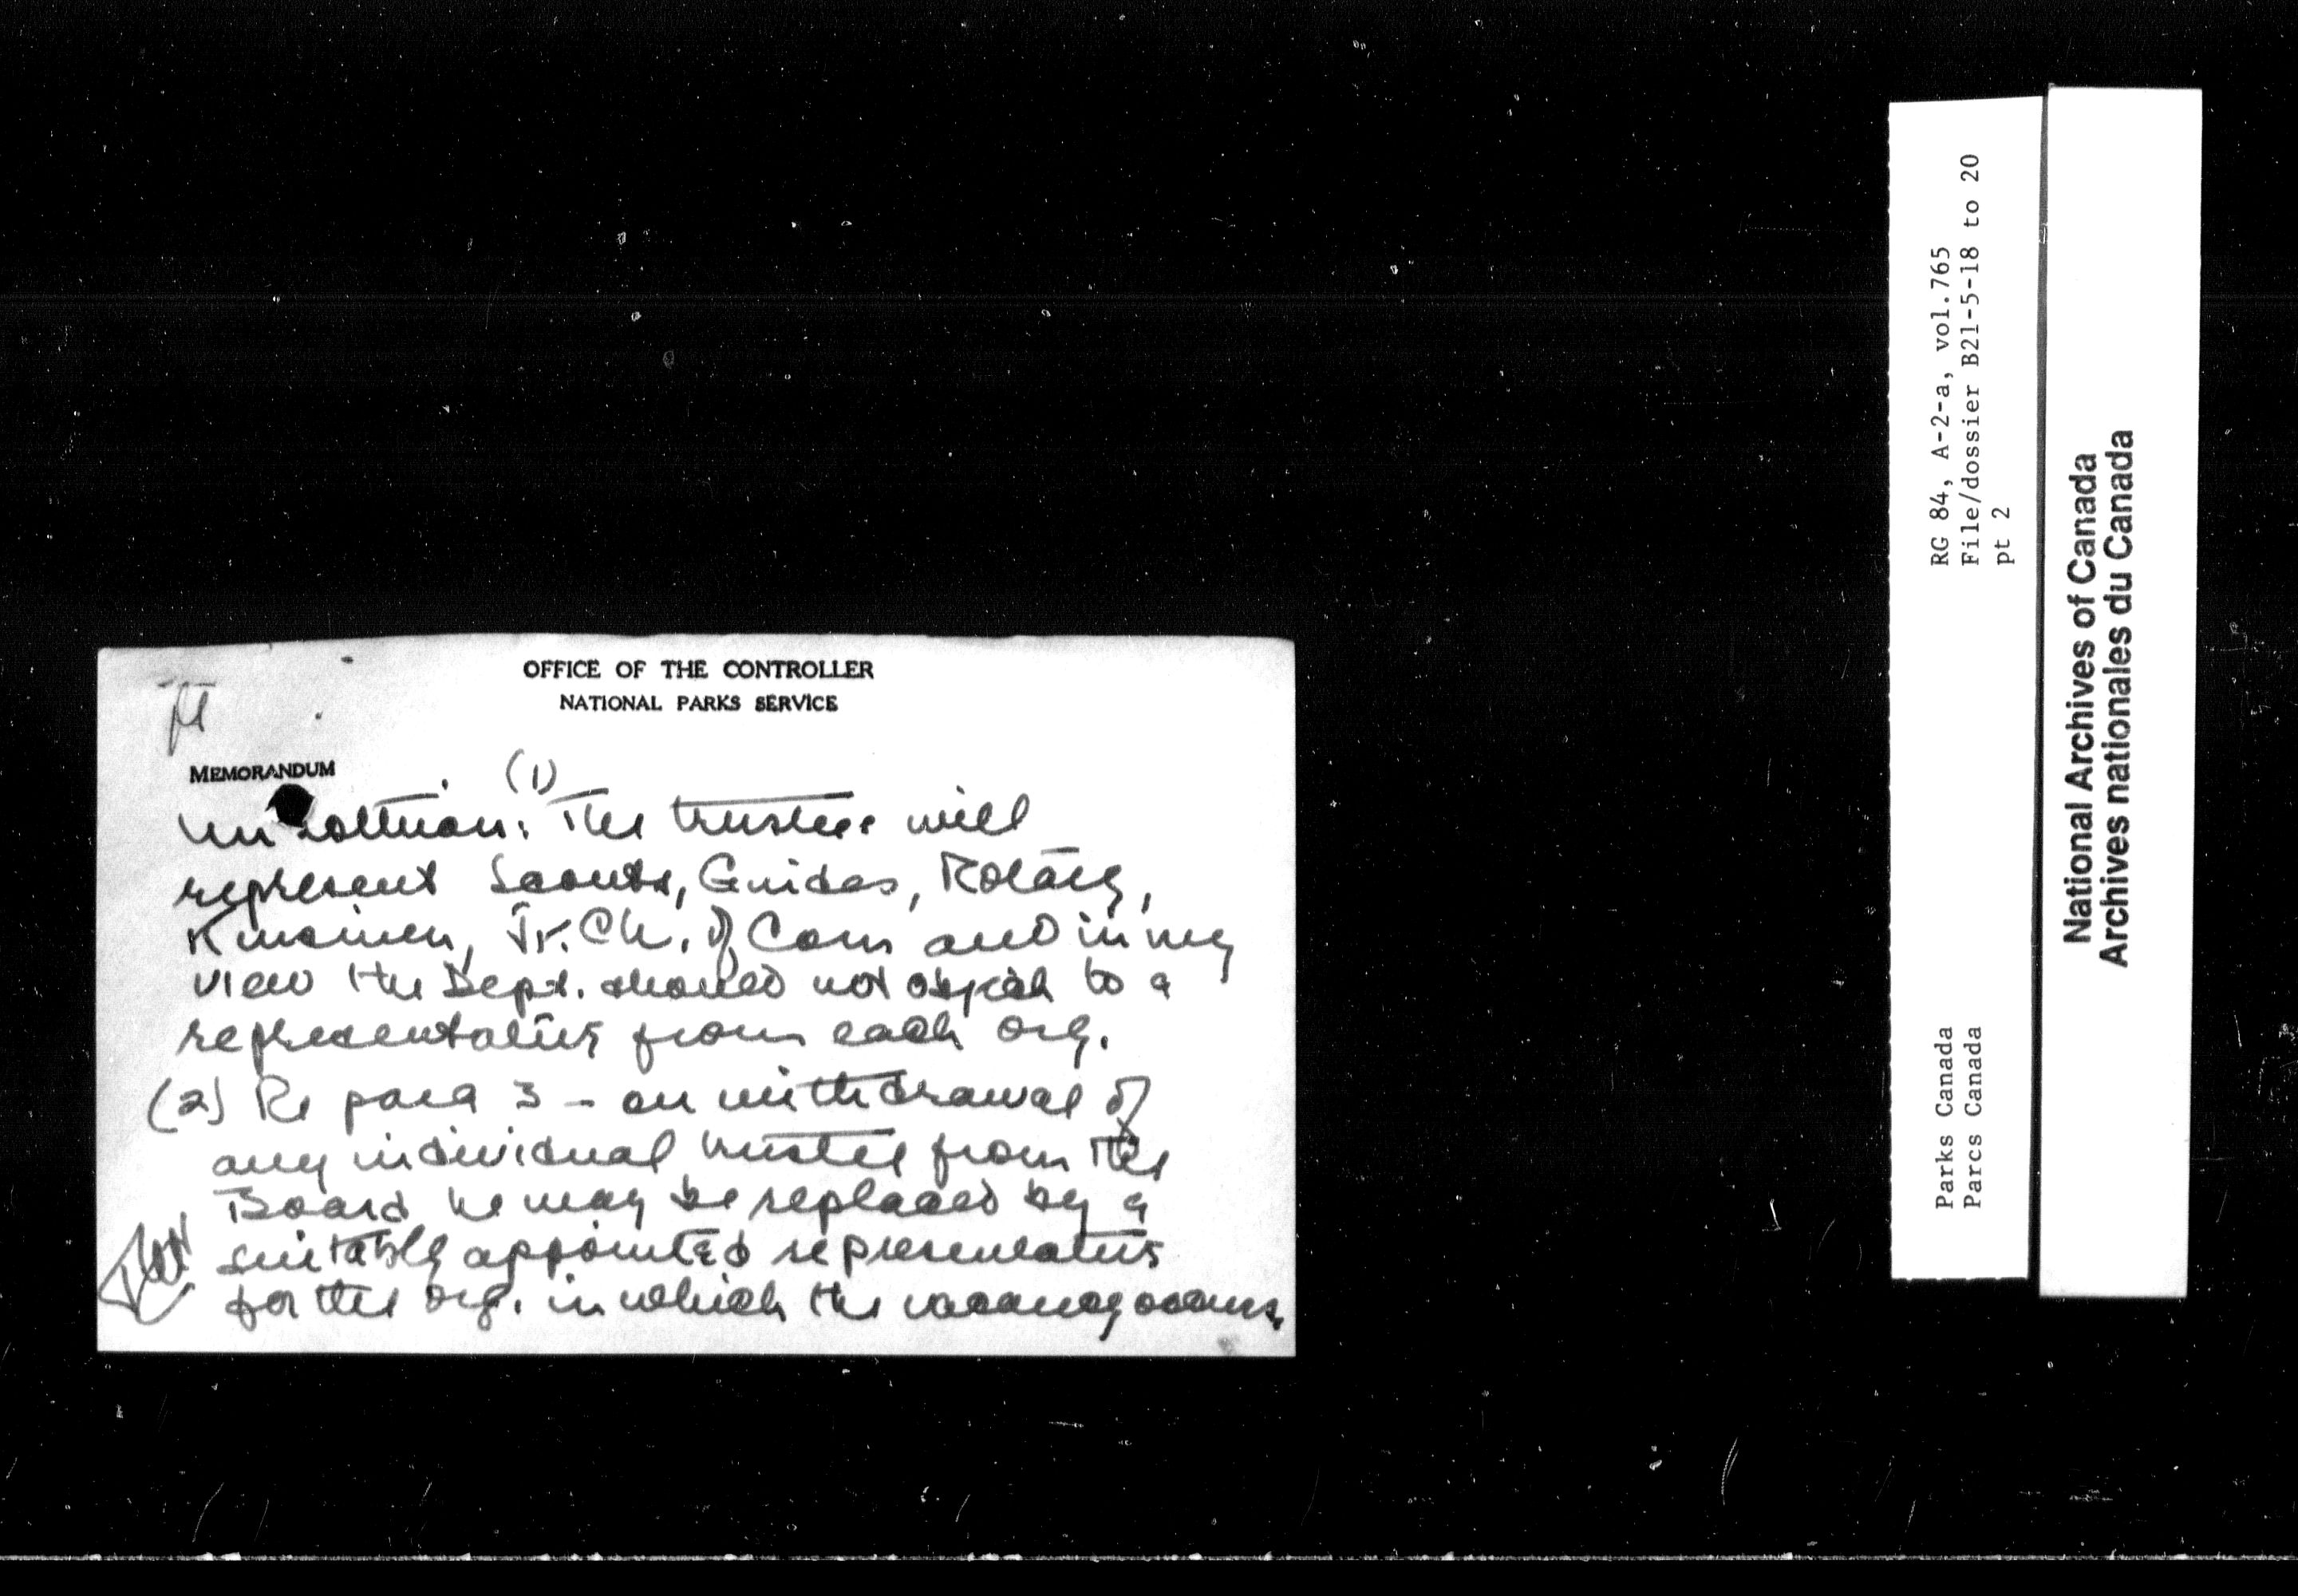 OFFICE OF THE CONTROLLER
NATIONAL PARKS SERVICE
MEMORANDUM
(1)
The trustees will
represent Scouts, Guides, Rotary,
Kinsmen, Jr. Ch. of Com and in my
view the Dept. should not object to a
representative from each org.
(2) Re para 3 - on withdrawal of
any individual trustee from the
Board he may be replaced by a
suitably appointed representative
for the org. in which the vacancy occurs.
RG 84, A-2-a, vol.765
File/dossier B21-5-18 to 20
pt 2
Parks Canada
Parcs Canada
National Archives of Canada
Archives nationales du Canada